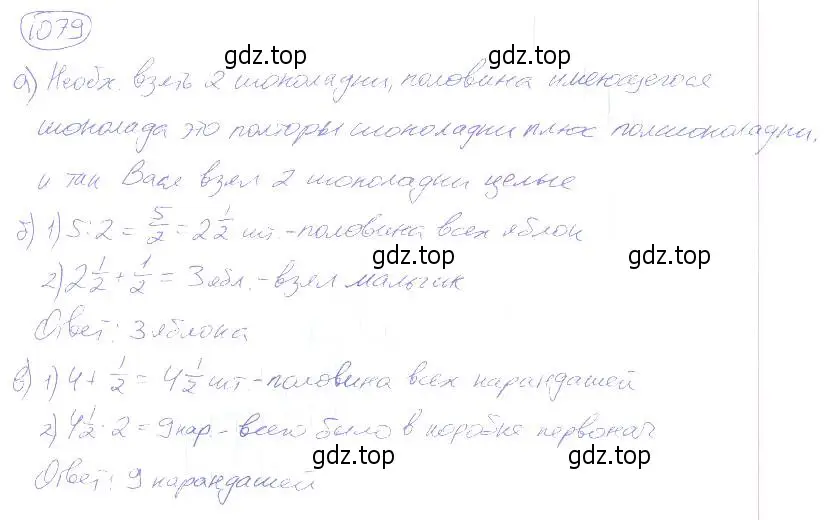 1079
gdz.top gdz.top
а) Необх. взять 2 шоколадки, половина имеющегося
шоколада это полторы шоколадки плюс полшоколадки.
gdz.top
и так Вася взял 2 шоколадки целые
б) 1) 5:2 = 5/2 = 2 1/2 шт. - половина всех яблок
gdz.top gdz.top
2) 2 1/2 + 1/2 = 3 ябл. - взял мальчик
Ответ: 3 яблока
gdz.top
в) 1) 4 + 1/2 = 4 1/2 шт - половина всех карандашей
2) 4 1/2 · 2 = 9 кар. - всего было в коробке первонач
gdz.top gdz.top
Ответ: 9 карандашей